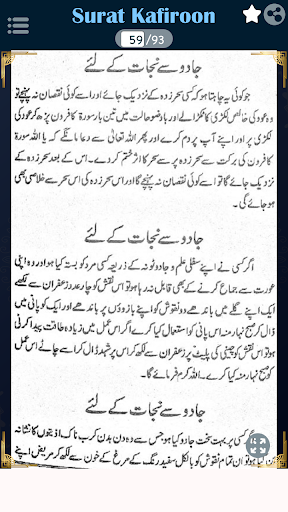 Surat Kafiroon
59/93
جادو سے نجات کے لئے
جو کوئی یہ چاہتا ہو کہ کسی سحر زدہ کے نزدیک جائے اور اسے کوئی نقصان نہ پہنچے تو
وہ عود کی خالص لکڑی کا ٹکڑا لے اور باوضو حالت میں تین بار سورۃ کافرون پڑھ کر عود کی
لکڑی پر اور اپنے آپ پر دم کرے اور پھر اللہ تعالیٰ سے دعا مانگے کہ یا اللہ سورۃ
کافرون کی برکت سے سحر زدہ پر سے سحر کا اثر ختم کر دے۔ اس کے بعد سحر زدہ کے
نزدیک جائے گا تو اسے کوئی نقصان نہ پہنچے گا اور اس سحر زدہ کی اس سحر سے خلاصی بھی
ہو جائے گی۔
جادو سے نجات کے لئے
اگر کسی نے اپنے سفلی علم و جادو ٹونہ کے ذریعہ کسی مرد کو بستہ کیا ہو اور وہ اپنی
عورت سے جماع کرنے کے بھی قابل نہ رہا ہو تو اس نقش کو چار عدد زعفران سے لکھے
اور ایک اپنے گلے میں باندھے دو نقوش کو اپنے بازوؤں پر باندھے اور ایک کو پانی میں
ڈال کر صبح نہار منہ اس پانی کو استعمال کیا کرے اگر اس عمل میں زیادہ طاقت پیدا کرنی
ہو تو اس نقش کو چینی کی پلیٹ پر زعفران سے لکھ کر اس پر شہد ڈال کر اسے چاٹے اس عمل
کو صبح نہار منہ کیا کرے۔ اللہ کرم فرمائے گا۔
جادو سے نجات کے لئے
اگر کسی پر بہت سخت جادو کیا ہو جس سے وہ دن بدن کرب ناک اذیتوں کا نشانہ
ہو تو ان تمام نقوش کو بالکل سفید رنگ کے مرغ کے خون سے لکھ کر مریض اپنے